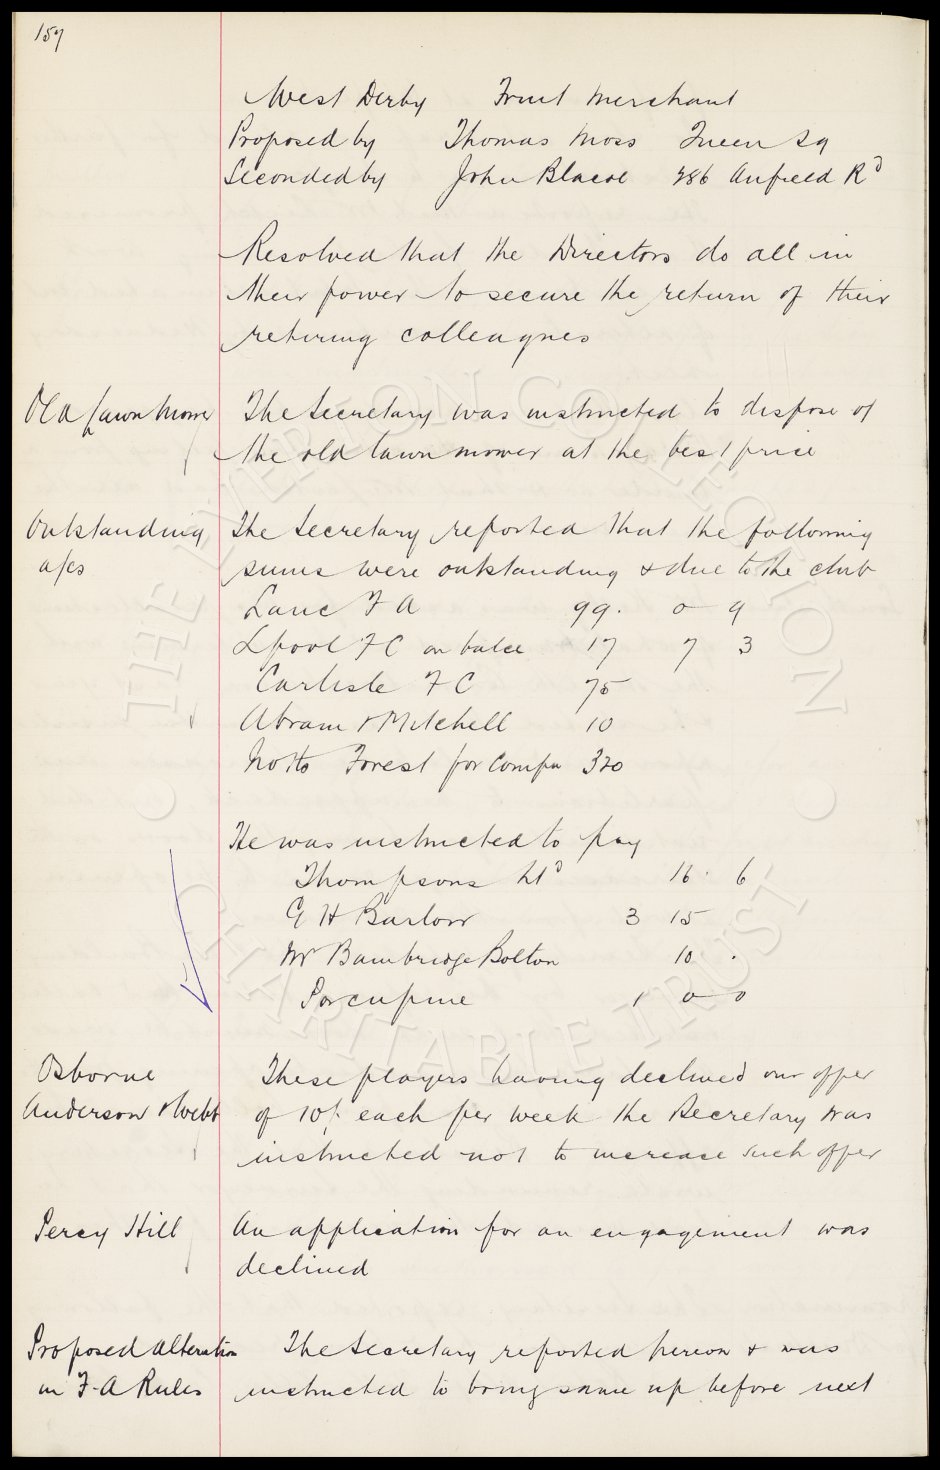 157
West Derby Fruit Merchant
Proposed by Thomas Moss Queen Sq
Seconded by John Blacoe 286 Anfield Rd
Resolved that the Directors do all in
their power to secure the return of their
retiring colleagues
Old Lawn Mower
The Secretary was instructed to dispose of
the old lawn mower at the best price
Outstanding
a/cs
The Secretary reported that the following
sums were outstanding & due to the club
Lanc F A 99. 0 9
Lpool F C on balce 17 7 3
Carlisle F C 75
Abram & Mitchell 10
Notts Forest for Compn 320
He was instructed to pay
Thompsons Ltd 16. 6
G H Barlow 3 15
Mr Bambridge Bolton 10 .
Porcupine 1 0 0
Osborne
Anderson & Webb
These players having declined our offer
of 10/- each per week the Secretary was
instructed not to increase such offer
Percy Hill
An application for an engagement was
declined
Proposed Alteration
in F.A Rules
The Secretary reported hereon & was
instructed to bring same up before next
THE EVERTON COLLECTION
CHARITABLE TRUST